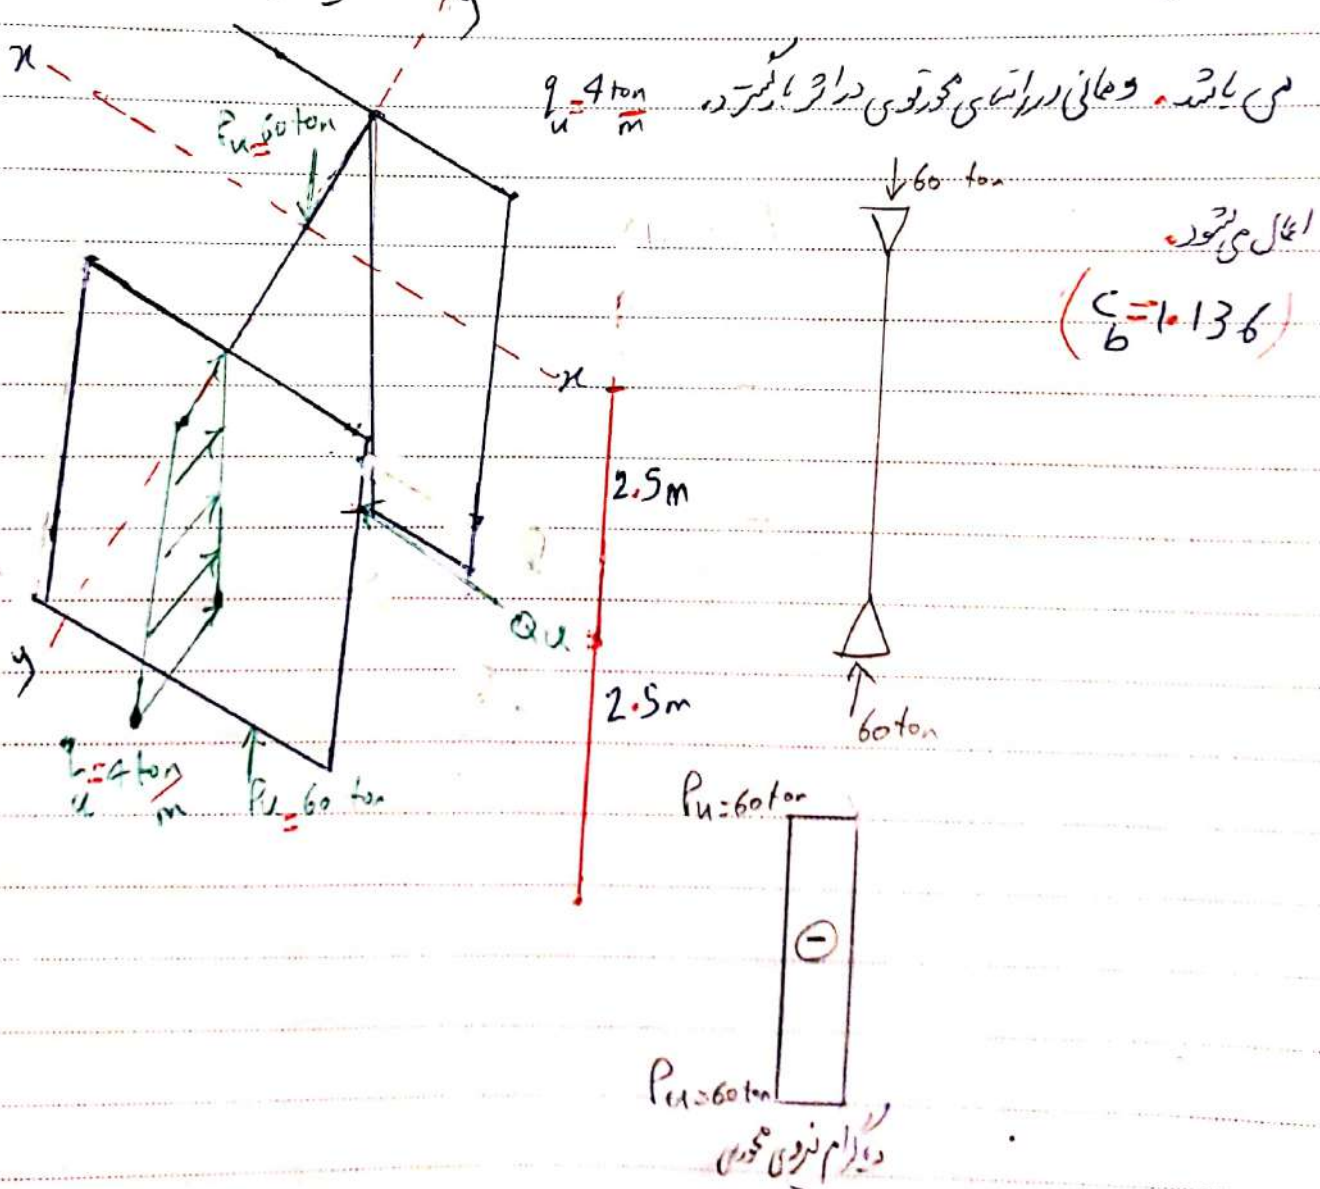 می باشد. و ممانی در راستای محور قوی در اثر بار گسترده q_u = 4 ton/m
اعمال می شود.
(C_b = 1.136)
x
P_u = 60 ton
60 ton
x
2.5m
Q_u
2.5m
y
q_u = 4 ton/m
P_u = 60 ton
60 ton
P_u = 60 ton
-
P_u = 60 ton
دیاگرام نیروی محوری